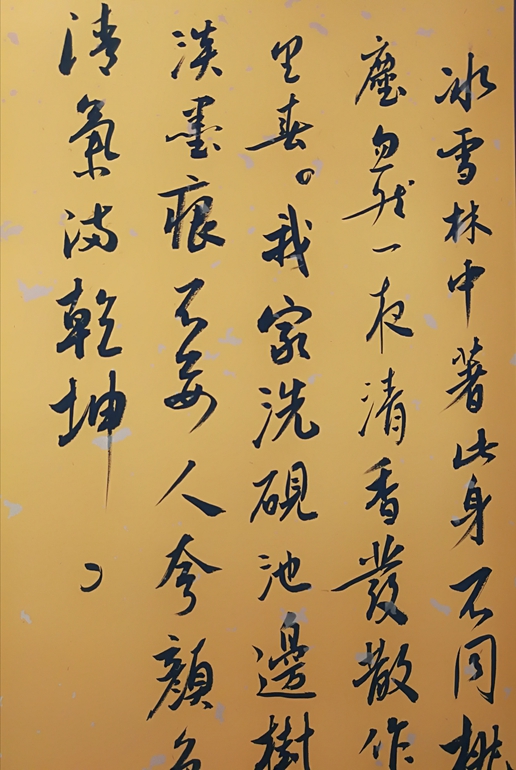 冰雪林中著此身不同桃
塵忽然一夜清香發散作
里春。我家洗硯池邊樹
淡墨痕不要人夸顏色
清氣滿乾坤